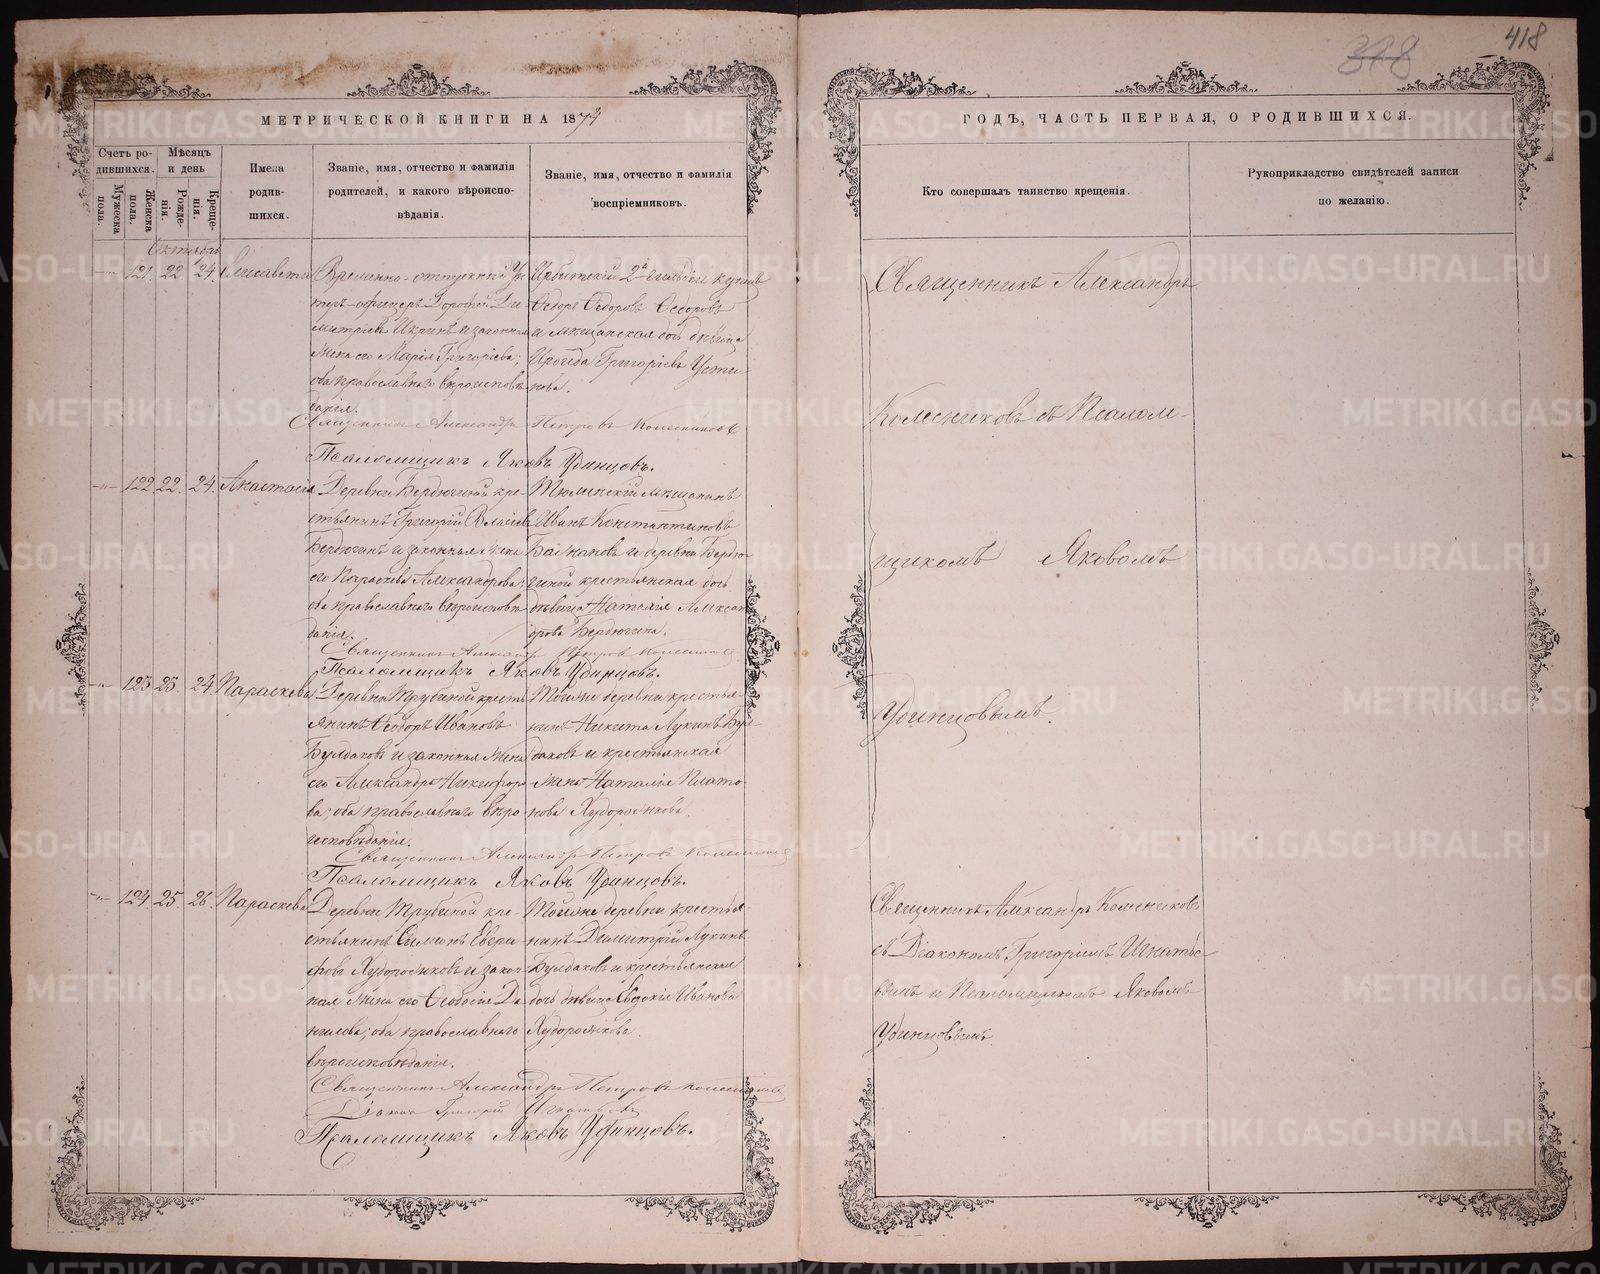 418
318
МЕТРИЧЕСКОЙ КНИГИ НА 1874
ГОДЪ, ЧАСТЬ ПЕРВАЯ, О РОДИВШИХСЯ.
Счетъ ро-
дившихся.
Мужеска
пола.
Женска
пола.
Мѣсяцъ
и день
Рожде-
нія.
Креще-
нія.
Имена
родив-
шихся.
Званіе, имя, отчество и фамилія
родителей, и какого вѣроиспо-
вѣданія.
Званіе, имя, отчество и фамилія
воспріемниковъ.
Кто совершалъ таинство крещенія.
Рукоприкладство свидѣтелей записи
по желанію.
Октябрь
121. 22 24. Елисавета
Временно-отпускной Ун
теръ-офицеръ Дорофей Ди
митріевъ Икринъ и законная
жена его Марія Григоріева;
оба православнаго вѣроисповѣ
данія.
Ирбитскій 2й гильдіи купецъ
Ѳедоръ Ѳедоровъ
и мѣщанская дочь дѣвица
Григоріева Усти
нова.
Священникъ Александръ Петровъ Колесниковъ
Псаломщикъ Яковъ Удинцовъ.
122 22. 24. Анастасія
Деревни Бердюгиной кре-
стьянинъ Григорій Власіевъ
Бердюгинъ и законная жена
его Параскева Александрова;
оба православнаго вѣроисповѣ
данія.
Тюменскій мѣщанинъ
Иванъ Константиновъ
Башмаковъ и деревни Бердю-
гиной крестьянская дочь
дѣвица Наталія Алексан
дрова Бердюгина.
Священникъ Александръ Петровъ Колесниковъ
Псаломщикъ Яковъ Удинцовъ.
123 23. 24. Параскева
Деревни Трубиной кресть
янинъ Ѳеодоръ Ивановъ
Булдаковъ и законная жена
его Александра Никифоро
ва; оба православнаго вѣро-
исповѣданія.
Тойже деревни крестья
нинъ Никита Лукинъ Бул-
даковъ и крестьянская
жена Наталія Плато-
нова Худорожкова.
Священникъ Александръ Петровъ Колесниковъ
Псаломщикъ Яковъ Удинцовъ.
124. 25. 26. Параскева
Деревни Трубиной кре-
стьянинъ Симеонъ Евери
фовъ Худорожковъ и закон
ная жена его Ѳеодосія Да
нилова; оба православнаго
вѣроисповѣданія.
Тойже деревни крестья
нинъ Димитрій Лукинъ
Булдаковъ и крестьянская
дочь дѣвица Евдокія Иванова
Худорожкова.
Священникъ Александръ Петровъ Колесниковъ
Діаконъ Григорій Игнатьевъ
Псаломщикъ Яковъ Удинцовъ.
Священникъ Александръ
Колесниковъ съ Псалом-
щикомъ Яковомъ
Удинцовымъ.
Священникъ Александръ Колесниковъ
съ Діакономъ Григоріемъ Игнатье-
вымъ и Псаломщикомъ Яковомъ
Удинцовымъ.
METRIKI.GASO-URAL.RU